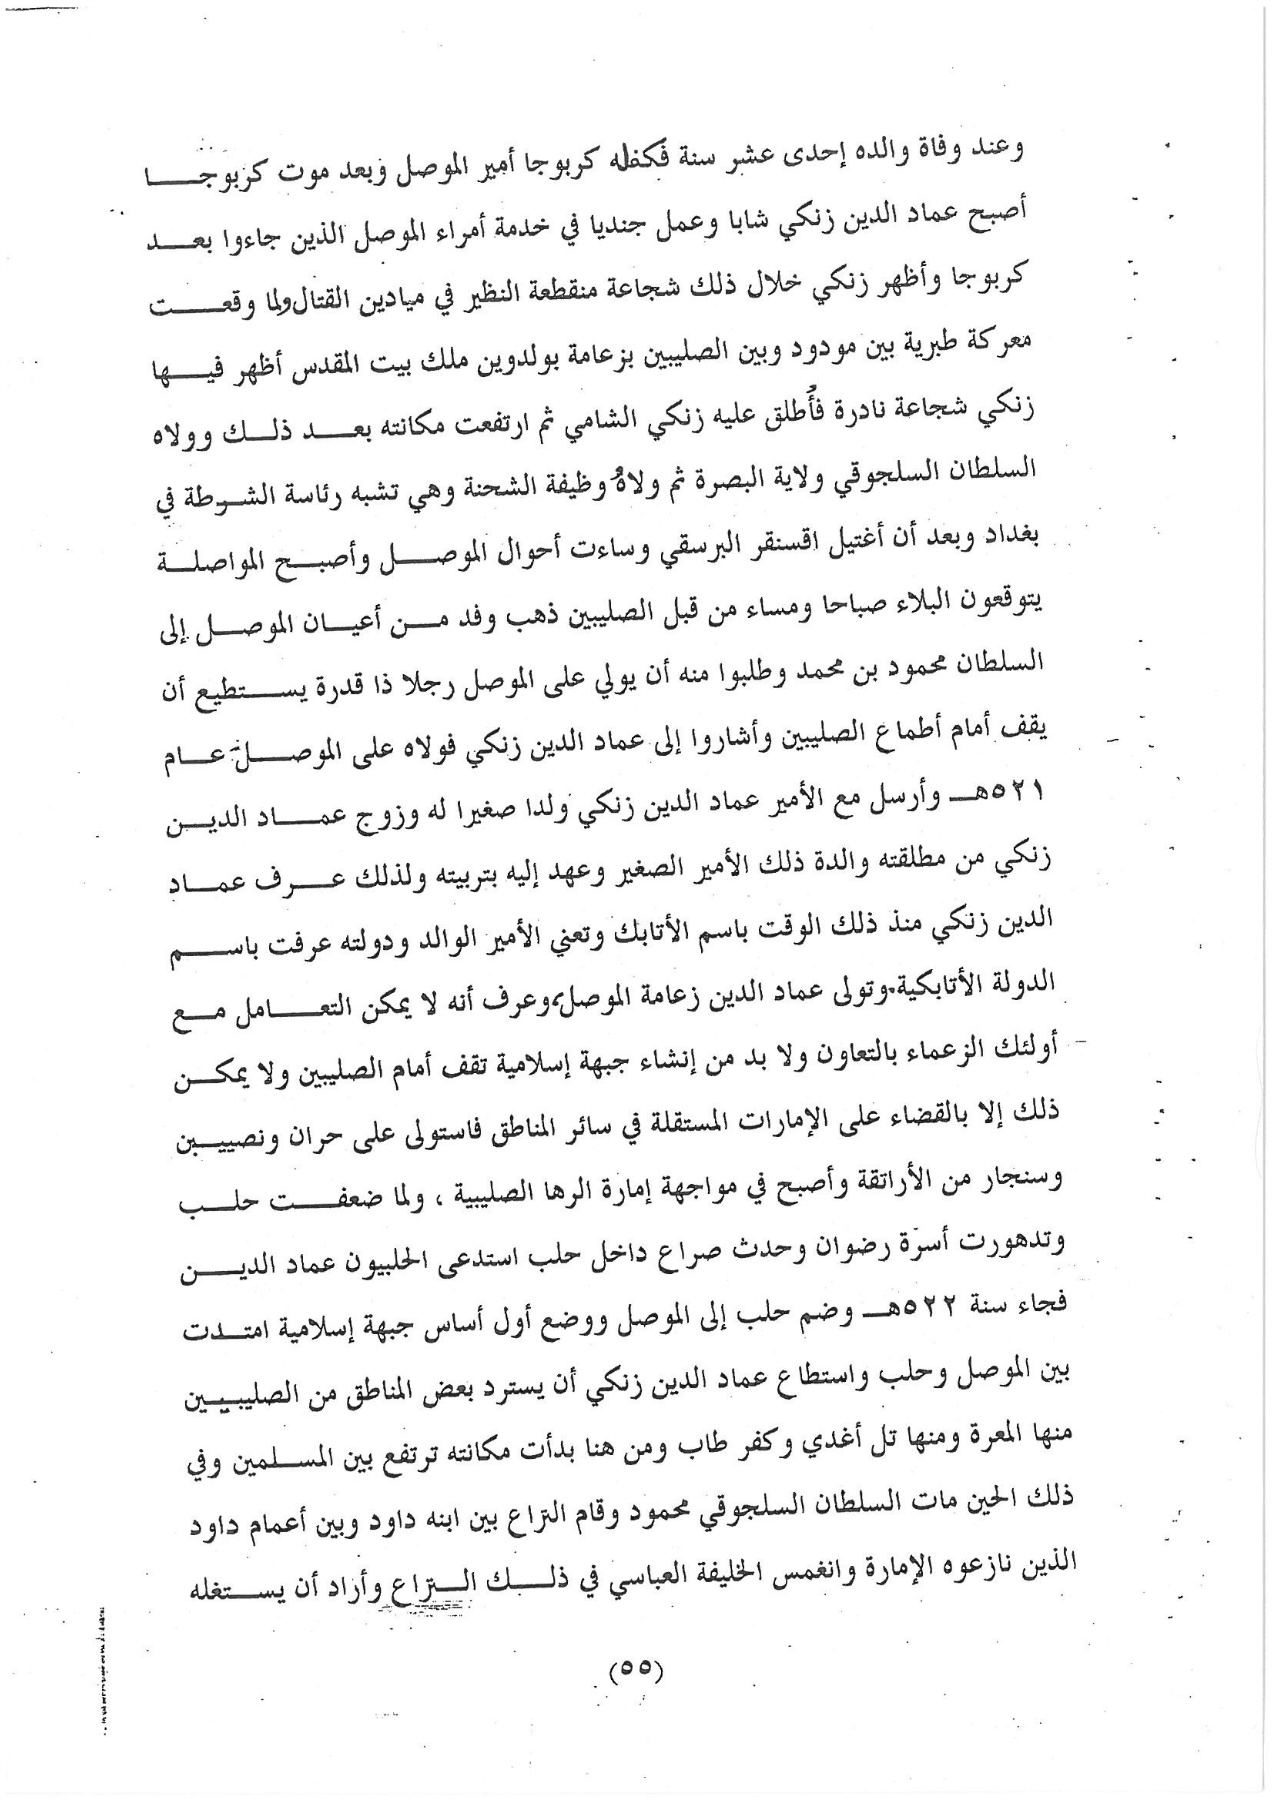 وعند وفاة والده إحدى عشر سنة فكفله كربوجا أمير الموصل وبعد موت كربوجا
أصبح عماد الدين زنكي شابا وعمل جنديا في خدمة أمراء الموصل الذين جاءوا بعد
كربوجا وأظهر زنكي خلال ذلك شجاعة منقطعة النظير في ميادين القتال ولما وقعت
معركة طبرية بين مودود وبين الصليبين بزعامة بولدوين ملك بيت المقدس أظهر فيها
زنكي شجاعة نادرة فأُطلق عليه زنكي الشامي ثم ارتفعت مكانته بعد ذلك وولاه
السلطان السلجوقي ولاية البصرة ثم ولاه وظيفة الشحنة وهي تشبه رئاسة الشرطة في
بغداد وبعد أن أغتيل اقسنقر البرسقي وساءت أحوال الموصل وأصبح المواصلة
يتوقعون البلاء صباحا ومساء من قبل الصليبين ذهب وفد من أعيان الموصل إلى
السلطان محمود بن محمد وطلبوا منه أن يولي على الموصل رجلا ذا قدرة يستطيع أن
يقف أمام أطماع الصليبين وأشاروا إلى عماد الدين زنكي فولاه على الموصل عام
٥٢١هـ وأرسل مع الأمير عماد الدين زنكي ولدا صغيرا له وزوج عماد الدين
زنكي من مطلقته والدة ذلك الأمير الصغير وعهد إليه بتربيته ولذلك عرف عماد
الدين زنكي منذ ذلك الوقت باسم الأتابك وتعني الأمير الوالد ودولته عرفت باسم
الدولة الأتابكية.وتولى عماد الدين زعامة الموصل،وعرف أنه لا يمكن التعامل مع
أولئك الزعماء بالتعاون ولا بد من إنشاء جبهة إسلامية تقف أمام الصليبين ولا يمكن
ذلك إلا بالقضاء على الإمارات المستقلة في سائر المناطق فاستولى على حران ونصيبين
وسنجار من الأراتقة وأصبح في مواجهة إمارة الرها الصليبية ، ولما ضعفت حلب
وتدهورت أسرة رضوان وحدث صراع داخل حلب استدعى الحلبيون عماد الدين
فجاء سنة ٥٢٢هـ وضم حلب إلى الموصل ووضع أول أساس جبهة إسلامية امتدت
بين الموصل وحلب واستطاع عماد الدين زنكي أن يسترد بعض المناطق من الصليبيين
منها المعرة ومنها تل أغدي وكفر طاب ومن هنا بدأت مكانته ترتفع بين المسلمين وفي
ذلك الحين مات السلطان السلجوقي محمود وقام النزاع بين ابنه داود وبين أعمام داود
الذين نازعوه الإمارة وانغمس الخليفة العباسي في ذلك النزاع وأراد أن يستغله
(٥٥)